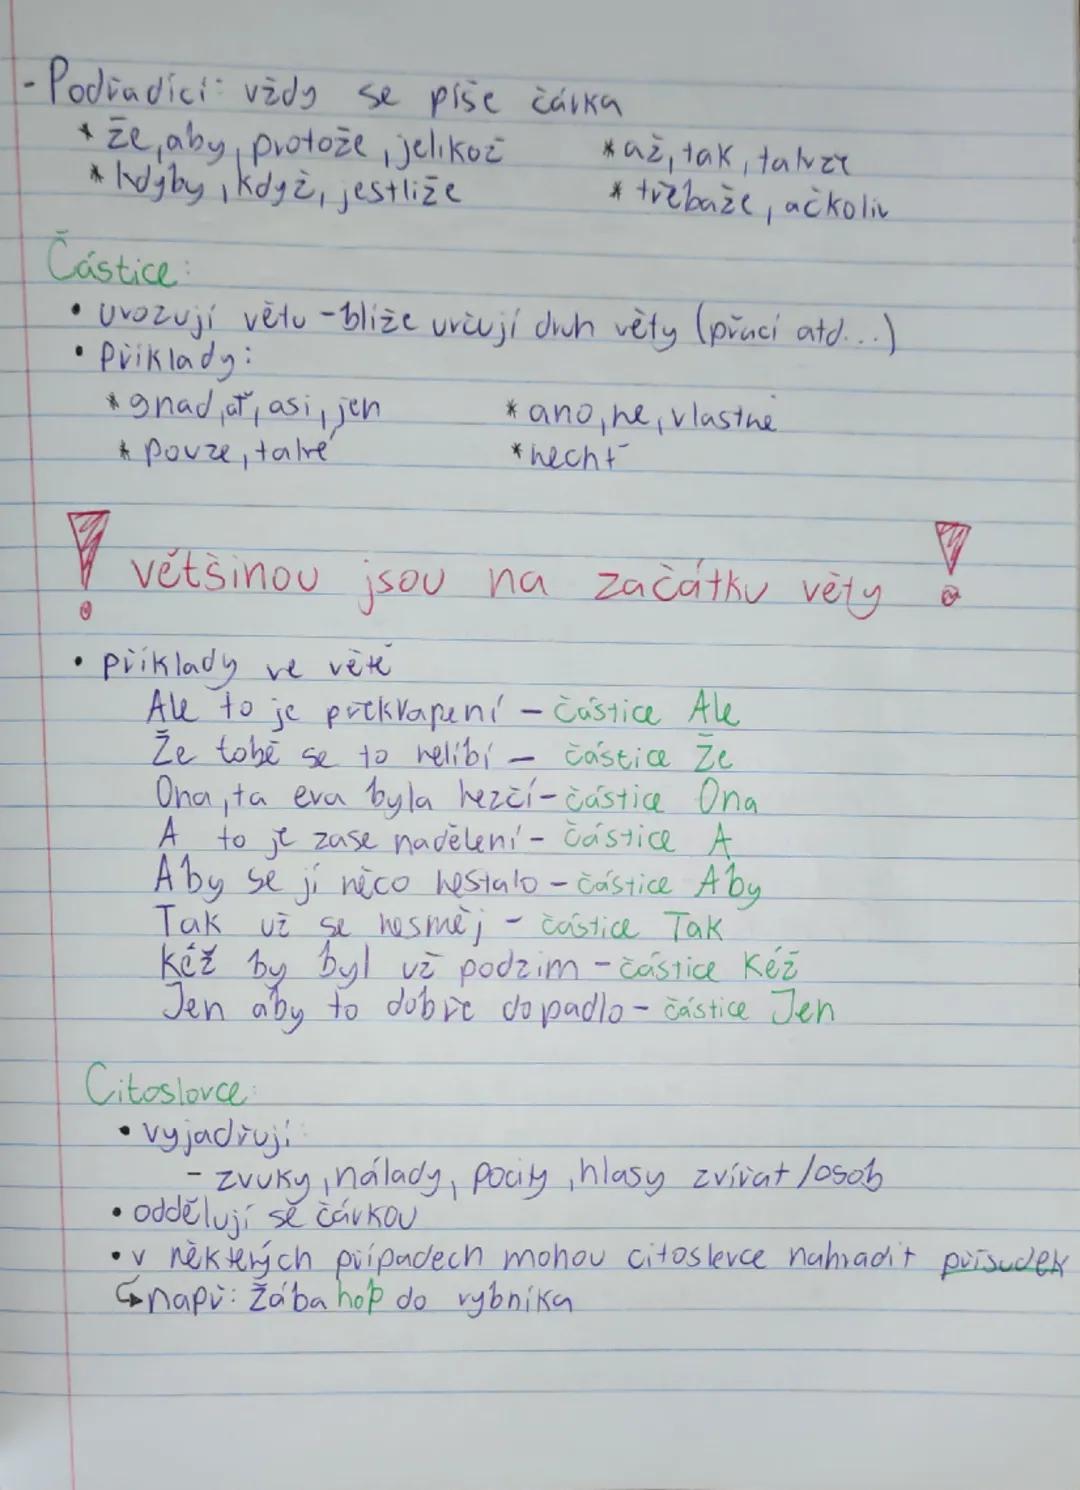 - Podřadící: vždy se píše čárka
* že, aby, protože, jelikož * až, tak, takže
* kdyby, když, jestliže * třebaže, ačkoliv
Částice:
• uvozují větu - blíže určují druh věty (přací atd...)
• Příklady:
* snad, ať, asi, jen * ano, ne, vlastně
* pouze, také * nechť
! většinou jsou na začátku věty !
• příklady ve větě
Ale to je překvapení - částice Ale
Že tobě se to nelíbí - částice Že
Ona, ta eva byla hezčí - částice Ona
A to je zase nadělení - částice A
Aby se jí něco nestalo - částice Aby
Tak už se nesměj - částice Tak
Kéž by byl už podzim - částice Kéž
Jen aby to dobře dopadlo - částice Jen
Citoslovce:
• vyjadřují:
- zvuky, nálady, pocity, hlasy zvířat / osob
• oddělují se čárkou
• v některých případech mohou citoslovce nahradit přísudek
↳ např: Žába hop do rybníka